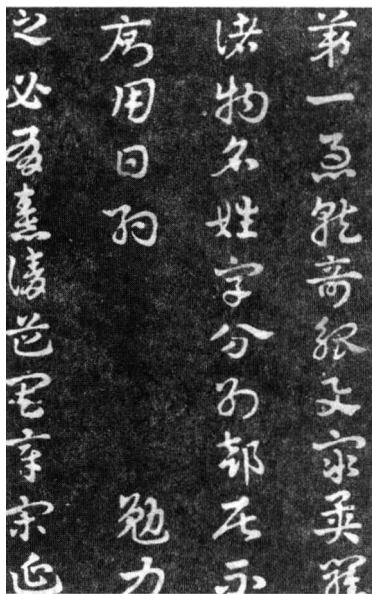 第一急就奇觚與衆異羅
諸物名姓字分別部居不
廁用日約 勉力
之必有憙請道其章宋延